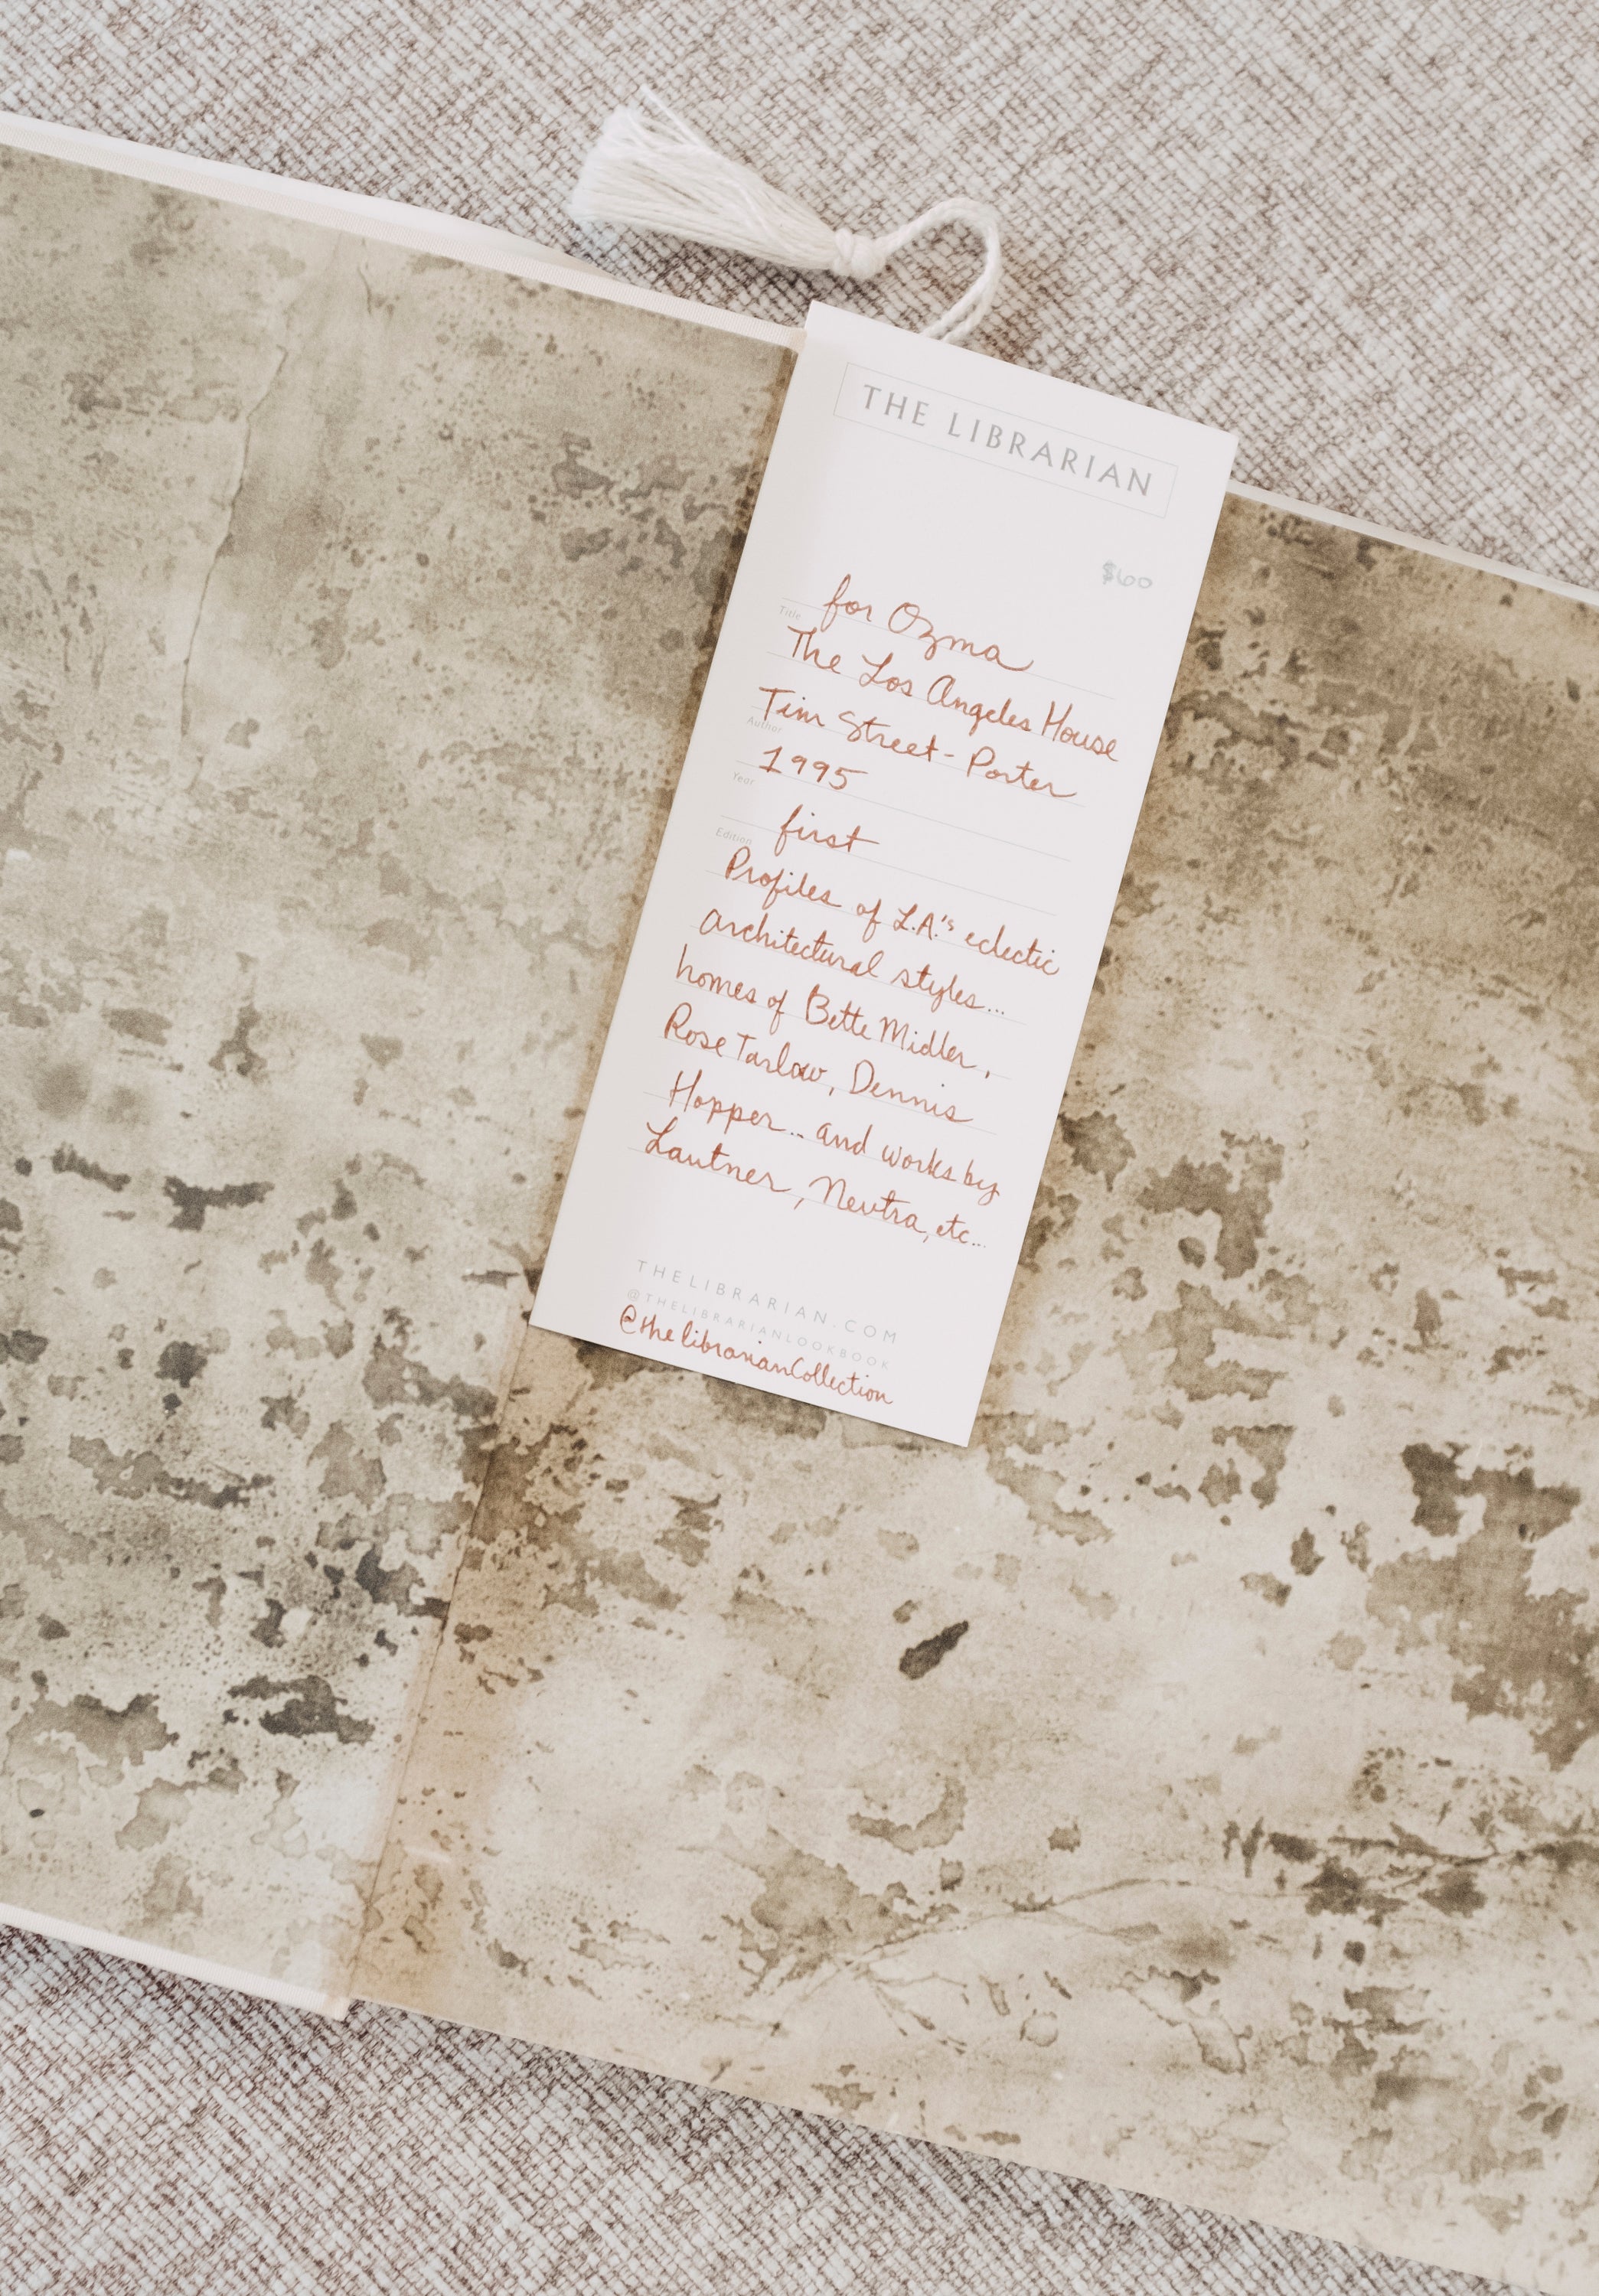 THE LIBRARIAN
$60
for Ozma
Title
The Los Angeles House
Tim Street-Porter
Author
1995
Year
first
Edition
Profiles of L.A.'s eclectic
architectural styles...
homes of Bette Midler,
Rose Tarlow, Dennis
Hopper... and works by
Lautner, Neutra, etc...
THELIBRARIAN.COM
@THELIBRARIANLOOKBOOK
@thelibrarianCollection